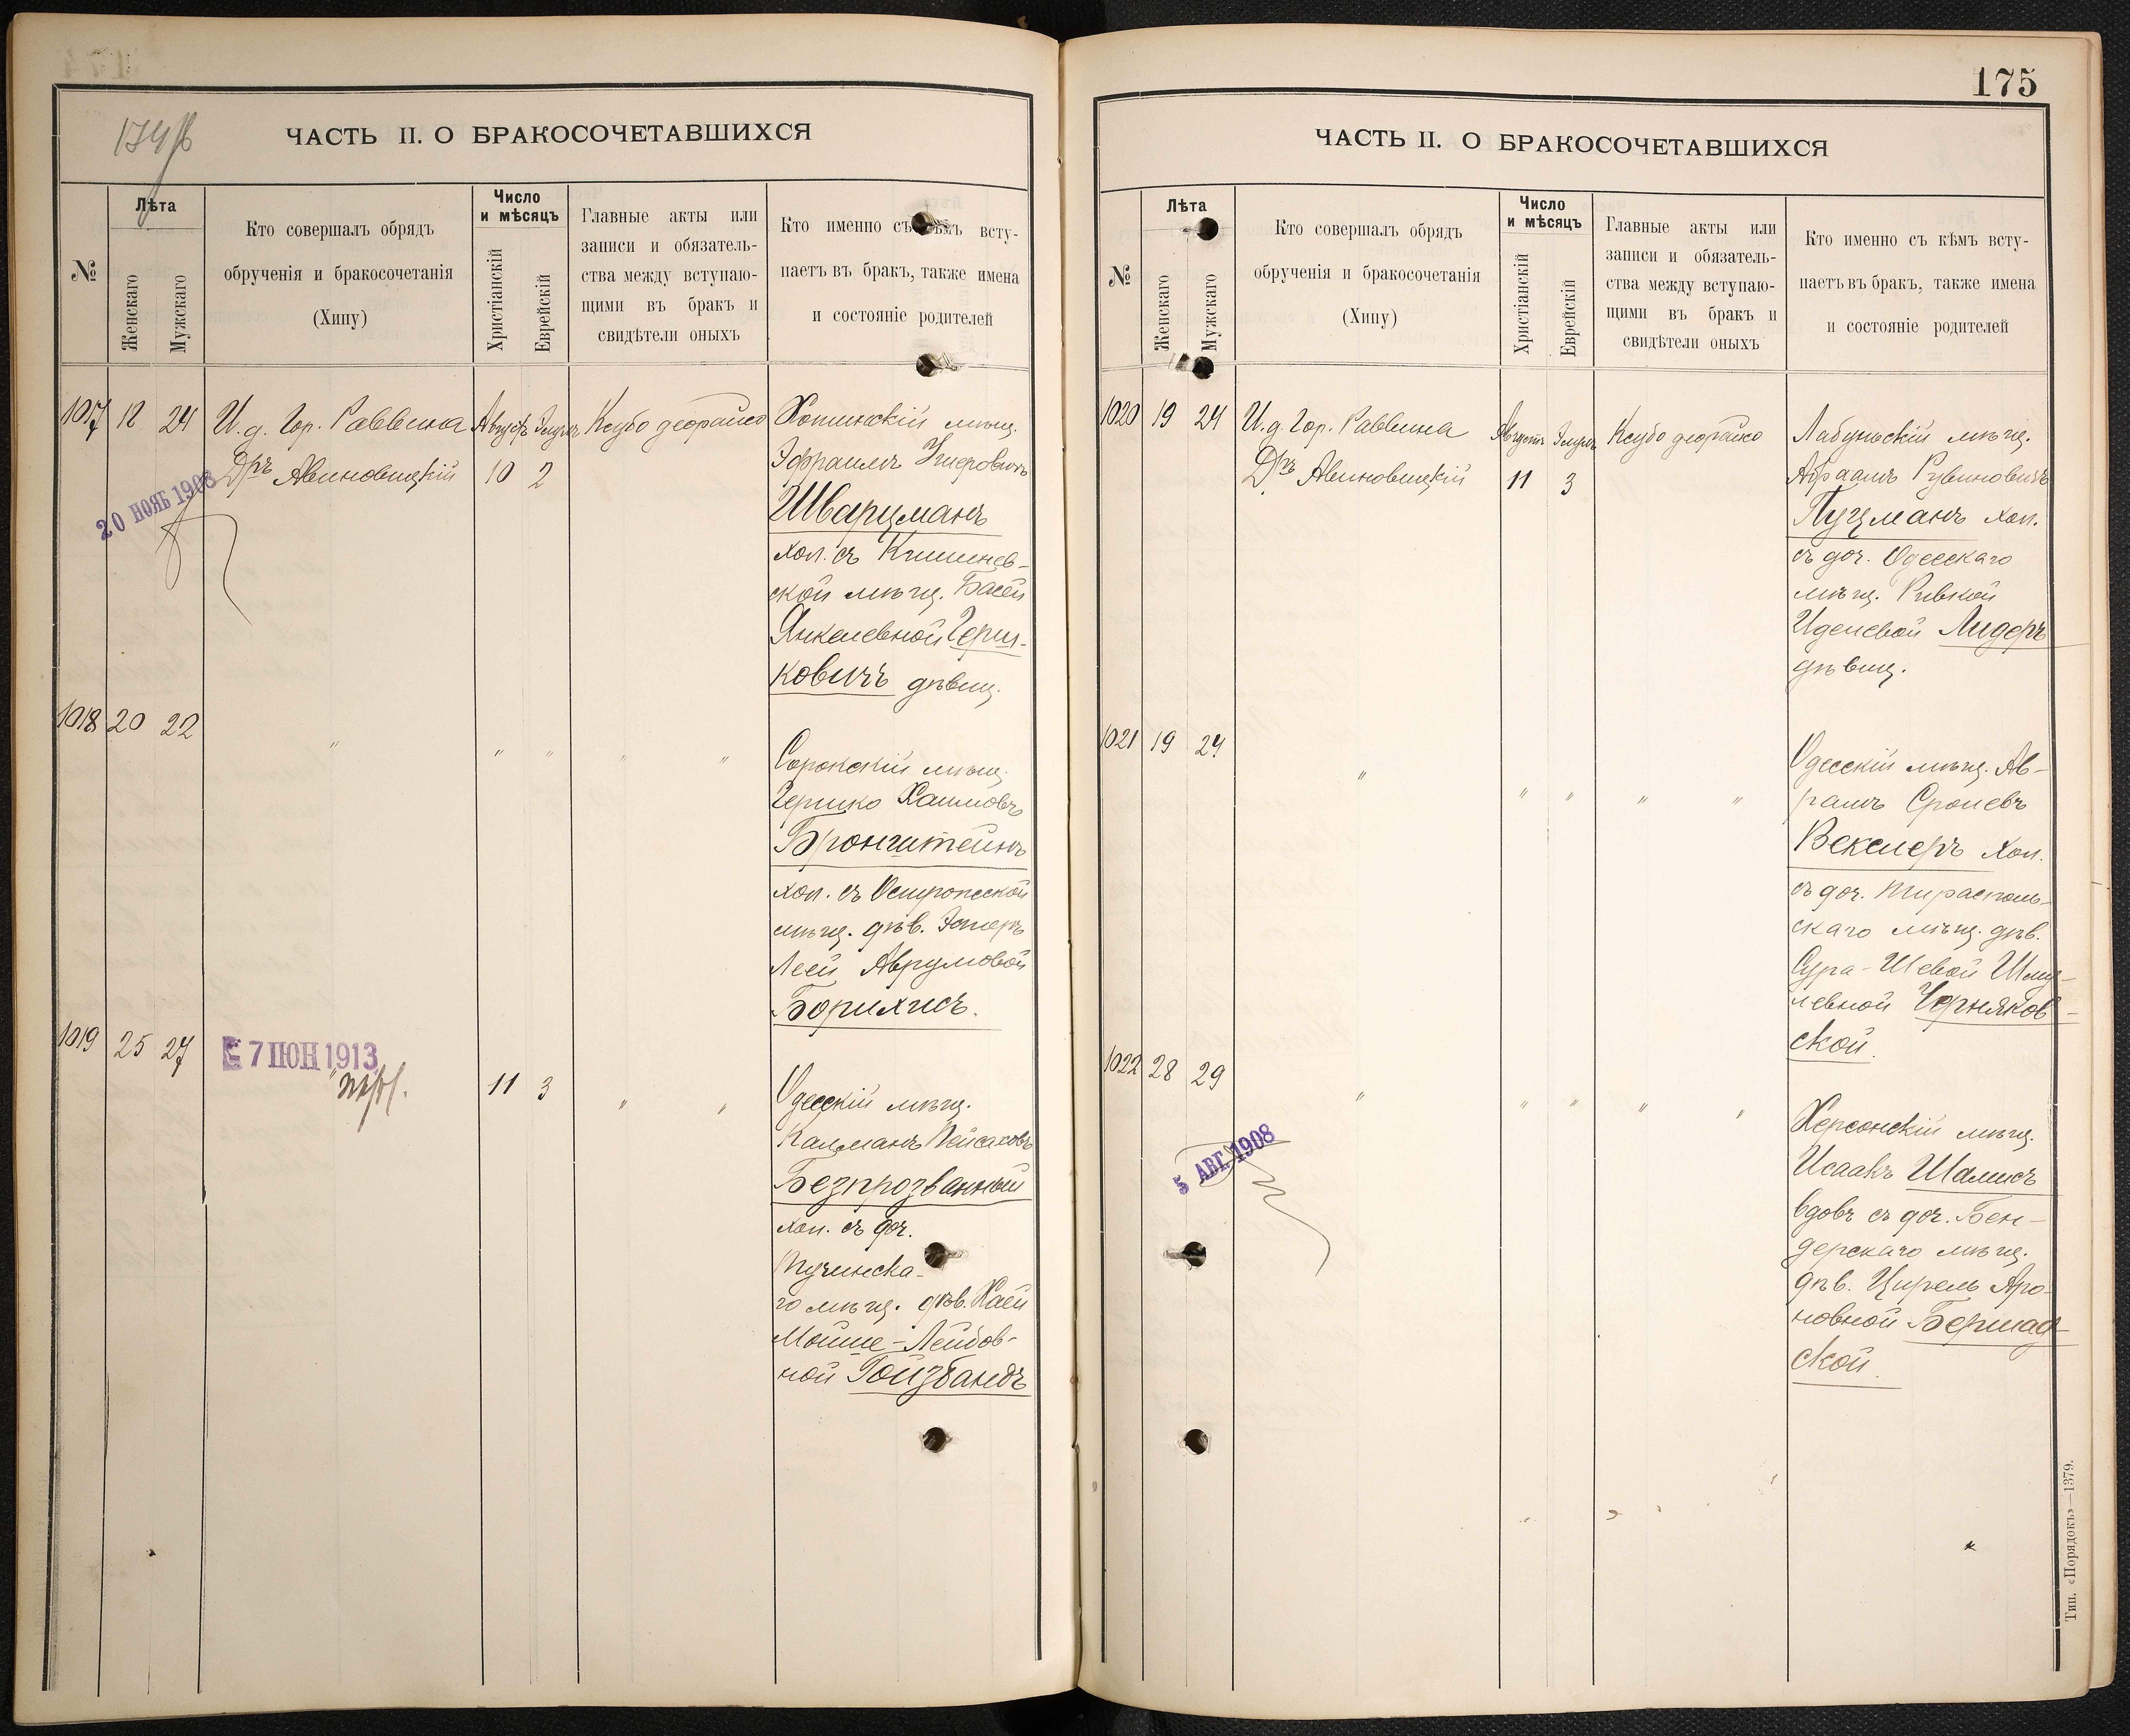 174 об
ЧАСТЬ II. О БРАКОСОЧЕТАВШИХСЯ
№
Лѣта
Женскаго
Мужскаго
Кто совершалъ обрядъ
обрученія и бракосочетанія
(Хипу)
Число
и мѣсяцъ
Христіанскій
Еврейскій
Главные акты или
записи и обязатель-
ства между вступаю-
щими въ бракъ и
свидѣтели оныхъ
Кто именно съ кѣмъ всту-
паетъ въ бракъ, также имена
и состояніе родителей
1017 18 24 И. д. Гор. Раввина Августъ Элулъ Ксубо деорайсо Хотинскій мѣщ.
Дръ Авиновицкій 10 2 Эфраимъ
20 НОЯБ 1908
Шварцманъ
хол. съ Кишинев-
ской мѣщ. Басей
Янкелевной Герш-
ковичъ дѣвиц.
1018 20 22 " " " " "
Сорокскій мѣщ.
Гершко Хаимовъ
Бронштейнъ
хол. съ Остропольской
мѣщ. дѣв. Эстеръ
Леей Аврумовой
Борихисъ.
1019 25 27
7 ІЮН 1913
" 11 3 " "
Одесскій мѣщ.
Калманъ Пейсаховъ
Безпрозванный
хол. съ доч.
Тучинска-
го мѣщ. дѣв. Хаей
Мойше-Лейбов-
ной Гойзбандъ
175
ЧАСТЬ II. О БРАКОСОЧЕТАВШИХСЯ
№
Лѣта
Женскаго
Мужскаго
Кто совершалъ обрядъ
обрученія и бракосочетанія
(Хипу)
Число
и мѣсяцъ
Христіанскій
Еврейскій
Главные акты или
записи и обязатель-
ства между вступаю-
щими въ бракъ и
свидѣтели оныхъ
Кто именно съ кѣмъ всту-
паетъ въ бракъ, также имена
и состояніе родителей
1020 19 24 И. д. Гор. Раввина Августъ Элулъ Ксубо деорайсо Лабунскій мѣщ.
Дръ Авиновицкій 11 3 Абраамъ Рувиновичъ
Пуцманъ хол.
съ доч. Одесскаго
мѣщ. Ривкой
Иделевой Лидеръ
дѣвиц.
1021 19 24 " " " " "
Одесскій мѣщ. Ав-
рамъ Сролевъ
Векслеръ хол.
съ доч. Тирасполь-
скаго мѣщ. дѣв.
Сура-Шевой Шму-
левной Черняков-
ской.
1022 28 29 " " " " "
5 АВГ. 1908
Херсонскій мѣщ.
Исаакъ Шамисъ
вдовъ съ доч. Бен-
дерскаго мѣщ.
дѣв. Цирель Аро-
новной Бершад-
ской.
Тип. «Порядокъ»—1379.